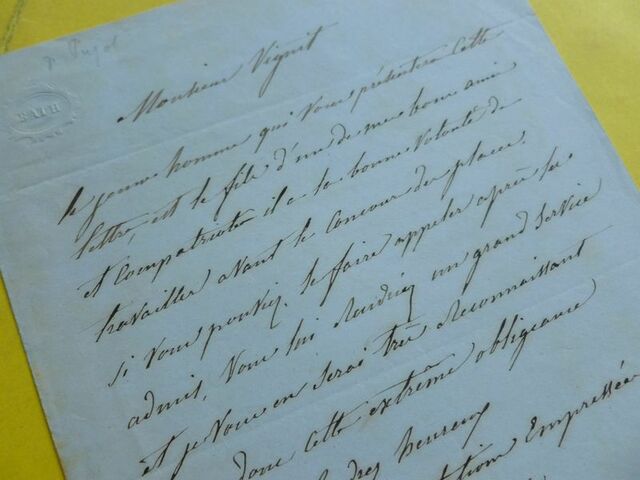 p. Pujol
BATH
Monsieur Vignit
le jeune homme qui vous présentera cette
lettre, est le fils d'un de mes bons amis
et compatriote il a la bonne volonté de
travailler avant le concour des places.
Si vous pouviez le faire appeler après les
admis, vous lui rendriez un grand service
et je vous en serai très reconnaissant
donc cette extrême obligeance
heureux
Empressée